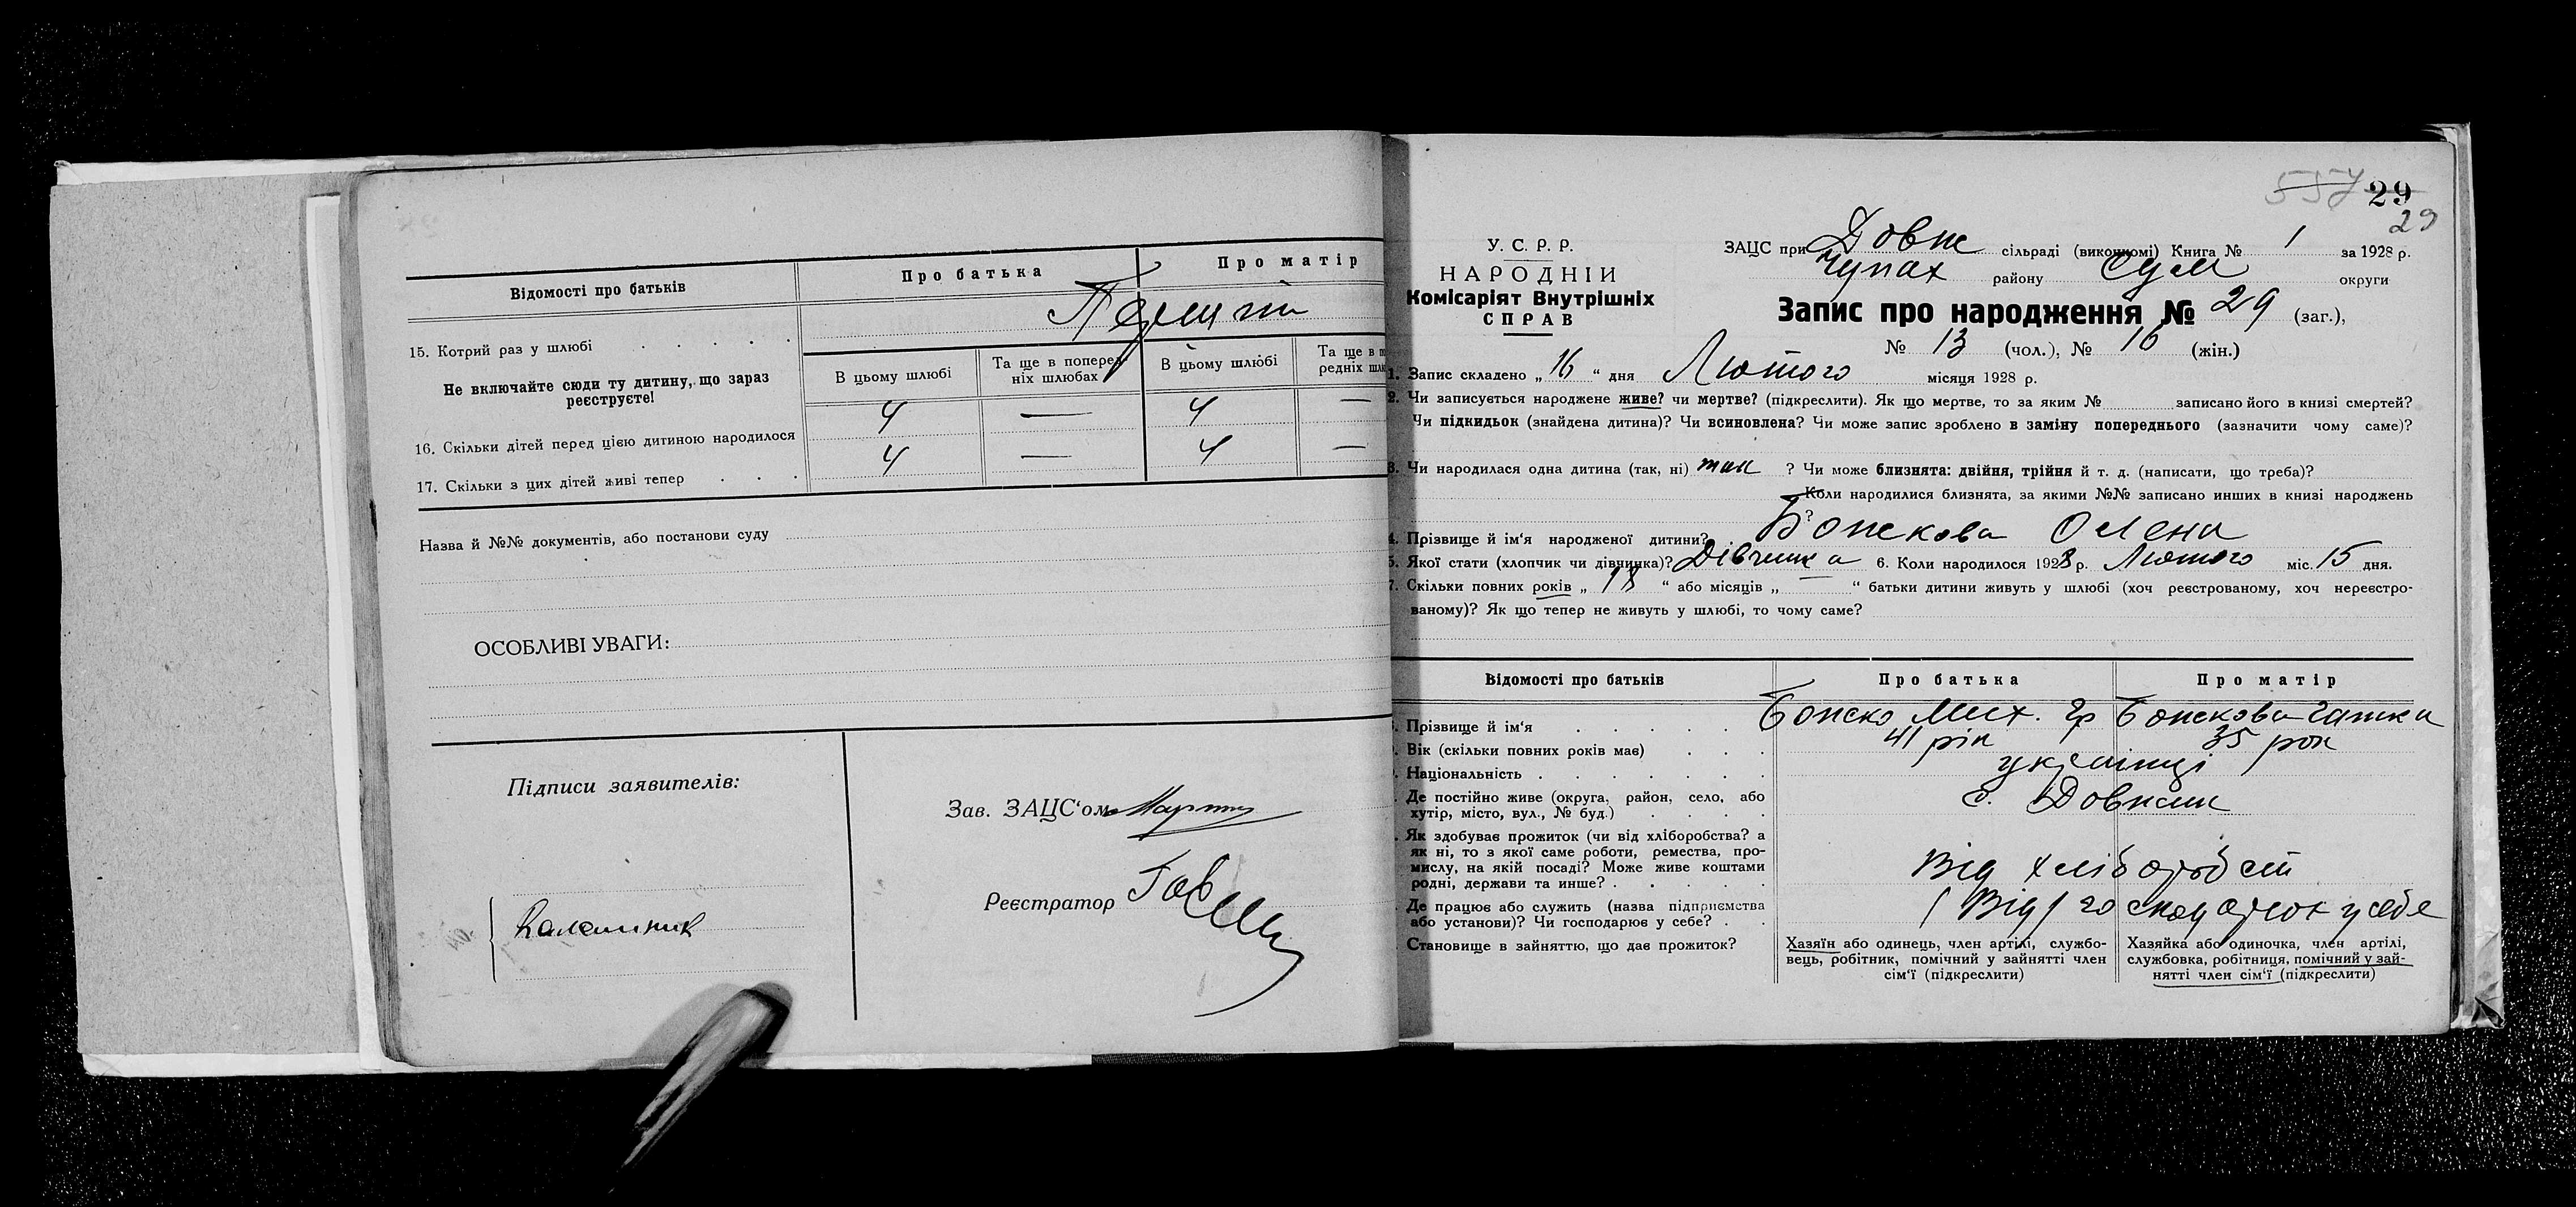 Відомості про батьків
Про батька
Про матір
15. Котрий раз у шлюбі . . . . .
Не включайте сюди ту дитину, що зараз
реєструєте!
В цьому шлюбі
Та ще в поперед-
ніх шлюбах
В цьому шлюбі
Та ще в п
редніх шлю
16. Скільки дітей перед цією дитиною народилося
4 — 4 —
17. Скільки з цих дітей живі тепер . . .
4 — 4 —
Назва й №№ документів, або постанови суду
ОСОБЛИВІ УВАГИ:
Підписи заявителів:
Зав. ЗАЦС‘ом
Реєстратор
557 29
29
У. С. Р. Р.
НАРОДНІЙ
Комісаріят Внутрішніх
СПРАВ
ЗАЦС при Довж сільраді (виконкомі) Книга № 1 за 1928 р.
Чупах району Сум округи
Запис про народження № 29 (заг.),
№ 13 (чол.), № 16 (жін.)
1. Запис складено „16“ дня Лютого місяця 1928 р.
2. Чи записується народжене живе? чи мертве? (підкреслити). Як що мертве, то за яким № записано його в книзі смертей?
Чи підкидьок (знайдена дитина)? Чи всиновлена? Чи може запис зроблено в заміну попереднього (зазначити чому саме)?
3. Чи народилася одна дитина (так, ні) так ? Чи може близнята: двійня, трійня й т. д. (написати, що треба)?
Коли народилися близнята, за якими №№ записано инших в книзі народжень
?
4. Прізвище й ім‘я народженої дитини? Божкова Олена
5. Якої стати (хлопчик чи дівчинка)? Дівчинка 6. Коли народилося 1928 р. Лютого міс. 15 дня.
7. Скільки повних років „18“ або місяців „—“ батьки дитини живуть у шлюбі (хоч реєстрованому, хоч нереєстро-
ваному)? Як що тепер не живуть у шлюбі, то чому саме?
Відомості про батьків
Про батька
Про матір
Прізвище й ім‘я . . . . .
Божко Мих. Гр
Божкова
Вік (скільки повних років має) . . .
41 рік
35 рок
Національність . . . . . . .
українці
Де постійно живе (округа, район, село, або
хутір, місто, вул., № буд.) . . . .
с. Довжик
Як здобуває прожиток (чи від хліборобства? а
як ні, то з якої саме роботи, ремества, про-
мислу, на якій посаді? Може живе коштами
родні, держави та инше? . . . . .
Від хліборобст
Де працює або служить (назва підприємства
або установи)? Чи господарює у себе? . .
у себе
Становище в зайняттю, що дає прожиток?
Хазяїн або одинець, член артілі, службо-
вець, робітник, помічний у зайнятті член
сім‘ї (підкреслити)
Хазяйка або одиночка, член артілі,
службовка, робітниця, помічний у зай-
нятті член сім‘ї (підкреслити)